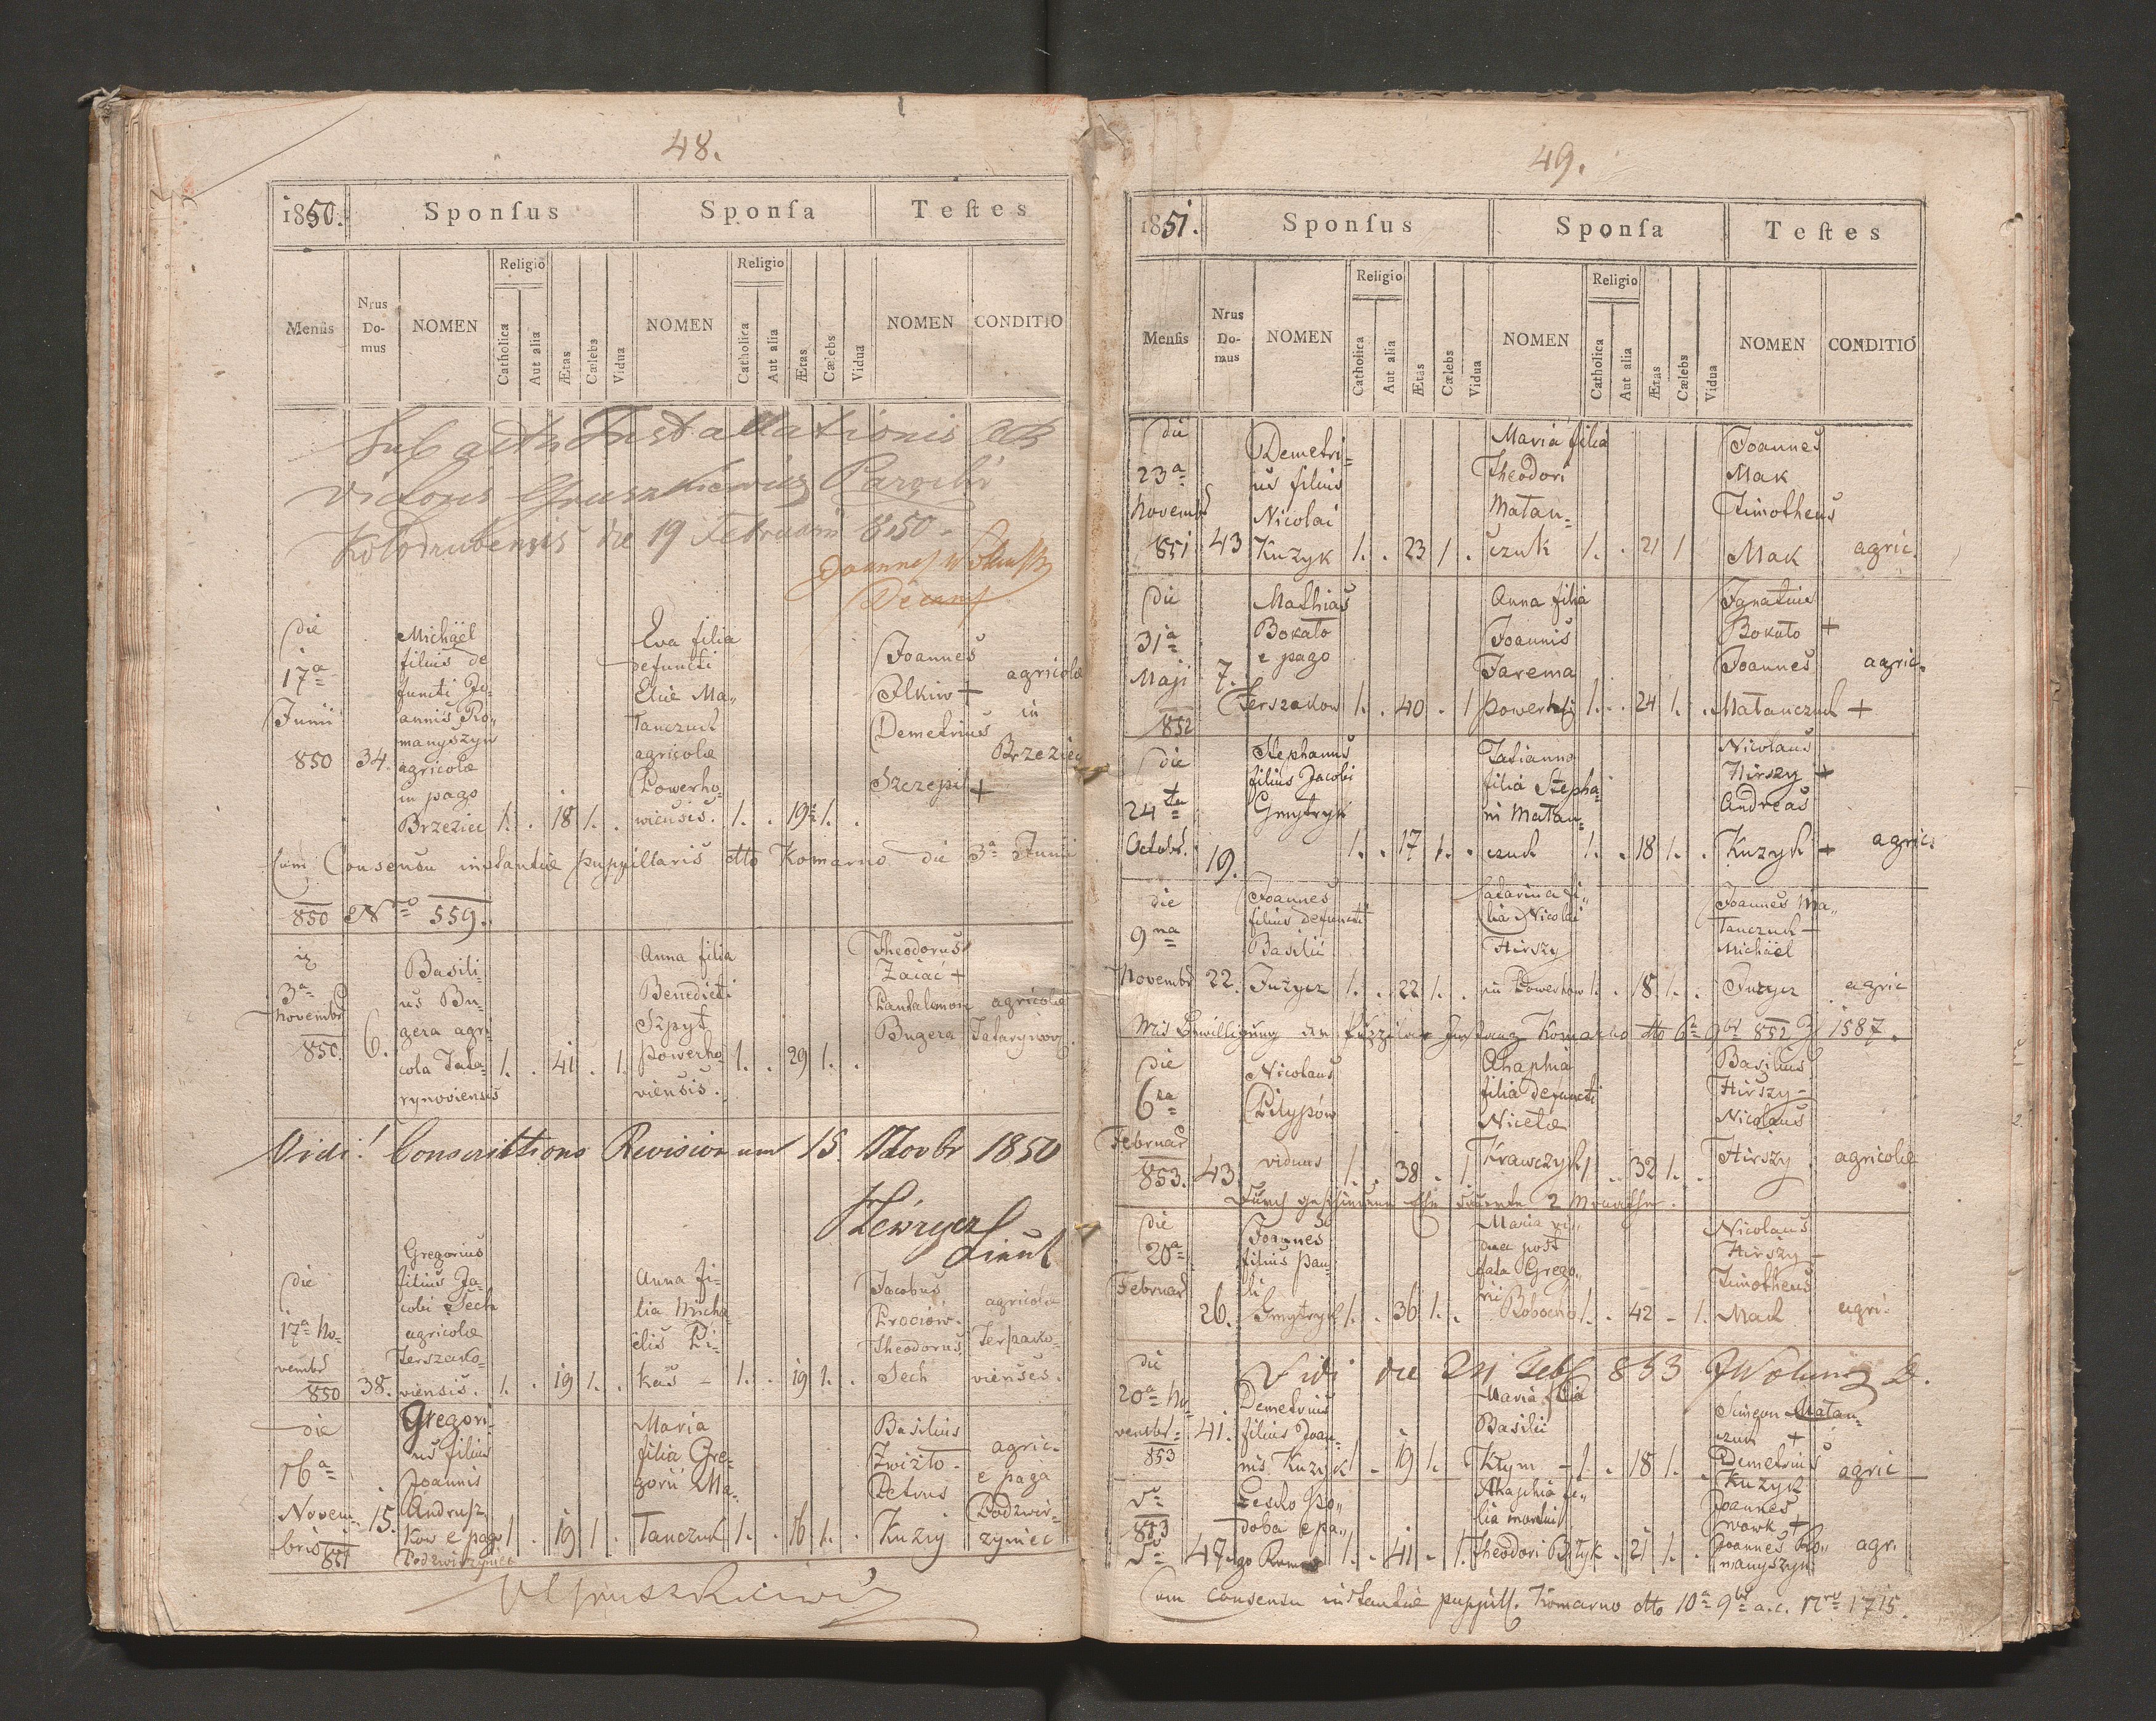 48.
1850.
Sponsus
Sponsa
Testes
Mensis
Nrus Do-mus
NOMEN
Religio
Catholica
Aut alia
Ætas
Cælebs
Vidua
NOMEN
Religio
Catholica
Aut alia
Ætas
Cælebs
Vidua
NOMEN
CONDITIO
Sub actu Installationis
Victoris Gruszkiewicz Parochi
Kołodrubensis die 19 Februarii 850.
Joannes
Decanus
die
17ª
Junii
850
34.
Michaël
filius de
functi Jo-
annis Ro„
manyszyn
agricolæ
in pago
Brzeziec
1. . 18 1. .
Eva filia
defuncti
Eliæ Ma„
tanczuk
agricolæ
Powerho„
wiensis.
1. . 19 1. .
Joannes
Ilkiw +
Demetrius
Szczepi +
agricolæ
in
Brzeziec
Cum Consensu instantiæ pupillaris dtto Komarno die 3ª Junii
850 Nro 559.
3ª
Novembr
850.
6.
Basili-
us Bu-
gera agri
cola Tata-
rynoviensis
1. . 41 . 1.
Anna filia
Benedicti
Szpyt
powerho
viensis.
1. . 29 1. .
Theodorus
Zaiac +
Pantalemon
Bugera
agricolæ
Tatarynov.
Vidi! Conscriptions Revision am 15. Novbr 1850
Lieut
die
17ª No-
vembr
850
38.
Gregorius
filius Ja-
cobi Sech
agricolæ
Terszako-
viensis.
1. . 19 1. .
Anna fi-
lia Micha
elis Pi-
kas -
1. . 19 1. .
Jacobus
Prociów.
Theodorus
Sech
agricolæ
Terszako-
vienses.
die
16ª
Novem-
bris
851
15.
Gregori-
us filius
Joannis
Andrusz
kow e pago
Podzwirzyniec
1. . 19 1. .
Maria
filia Gre-
gorii Ma-
tanczuk
1. . 16 1. .
Basilius
Zwizło.
Petrus
Kuzry
agric.
e pago
Podzwir-
zyniec
VGruszkiewicz
49.
1851.
Sponsus
Sponsa
Testes
Mensis
Nrus Do-mus
NOMEN
Religio
Catholica
Aut alia
Ætas
Cælebs
Vidua
NOMEN
Religio
Catholica
Aut alia
Ætas
Cælebs
Vidua
NOMEN
CONDITIO
die
23ª
Novembr
851
43
Demetri-
us filius
Nicolai
Kuzyk
1. . 23 1 .
Maria filia
Theodori
Matan-
czuk
1. . 21 1
Joannes
Mak
Timotheus
Mak
agric.
die
31ª
Maji
852
7.
Mathias
Bokało
e pago
Terszakow
1. . 40 . 1
Anna filia
Joannis
Jarema
powerhów
1. . 24 1. .
Ignatius
Bokało +
Joannes
Matanczuk +
agric.
die
24ta
Octobr.
19.
Stephanus
filius Jacobi
Gmytryk
1. . 17 1. .
Tatianna
filia Stepha-
ni Matan-
czuk
1. . 18 1. .
Nicolaus
Hirszy +
Andreas
Kuzyk +
agric.
die
9na
Novembr
22.
Joannes
filius defuncti
Basilii
Juzycz
1. . 22 1. .
Catarina fi„
lia Nicolai
Hirszy
in Powerhow
1. . 18 1. .
Joannes Ma„
tanczuk -
Michaël
Juzycz
agric
Mit Bewilligung der Pupillar Instanz Komarno dtto 6ª 9br 852 1587.
die
6ta
Februar
853.
43
Nicolaus
Pilypów
viduus
1. . 38 . 1
Ahaphia
filia defuncti
Nicetæ
Krawczyk
1 . 32 1. .
Basilius
Hirszy -
Nicolaus
Hirszy
agricolæ
die
20ª
Februar
26.
Joannes
filius Pau-
li
Gmytryk
1. . 36 1. .
Maria vi„
dua post
fata Grego„
rii
1. . 42 - 1.
Nicolaus
Hirszy -
Timotheus
Mak
agri.
Vidi die 24 Feb 853
die
20ª No-
vembr
853
41.
Demetrius
filius Joan-
nis Kuzyk
1 - 19 1.
Maria filia
Basilii
Kłym -
1 . 18 1. .
Simeon Matan-
czuk +
Demetrius
Kuzyk
agric
853
47.
Lesko Po„
doba e pa„
go
1. . 41 - 1.
Ahaphia fi„
lia mortui
Theodori Bizyk
. 21 1. .
Joannes
Wowk +
Joannes Ro„
manyszyn
agr.
Cum consensu instantiæ pupill. Komarno dtto 10ª 9br a.c. Nro 1715.